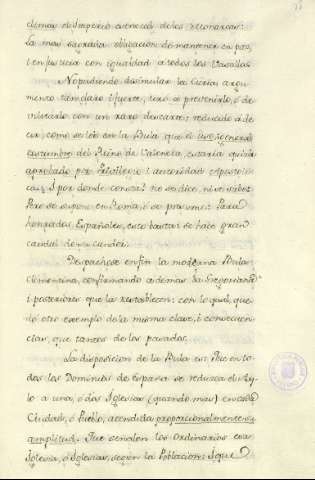 demas del Imperio esencia de los Monarcas:
la mas sagrada obligacion de mantener en paz,
i en justicia con igualdad a todos los Vasallos
No pudiendo disimular la Curia argu-
mento tan claro i fuerte, tiró a prevenirlo, ó de-
vilitarlo con un raro descarte; reducido á de-
cir, como se lee en la Bula, que el uso, general
costumbre del Reino de Valencia, estaria quizá
aprobado por Privilegio i autoridad Apostoli-
ca: I por donde consta? no se dice, ni se sabe:
Pero se supone en Roma, ó se presume: Para
honrados Españoles, esto basta: i se hace gran
caudal de su candor.
Despachese en fin la moderna Bula
Clementina, confirmando ademas la Gregoriana
i posteriores que la restablecen: con lo qual, que-
dó otro exemplo de la misma clase, i consecuen-
cias, que tantos de los pasados.
La disposicion de la Bula es: Que en to-
dos los Dominios de España se reduzca el Asy-
lo a una, ó dos Iglesias (quando mas) en cada
Ciudad, ó Pueblo, atendida proporcionalmente su
amplitud. Que señalen los Ordinarios esa
Iglesia, ó Iglesias, segun la Poblacion: I que